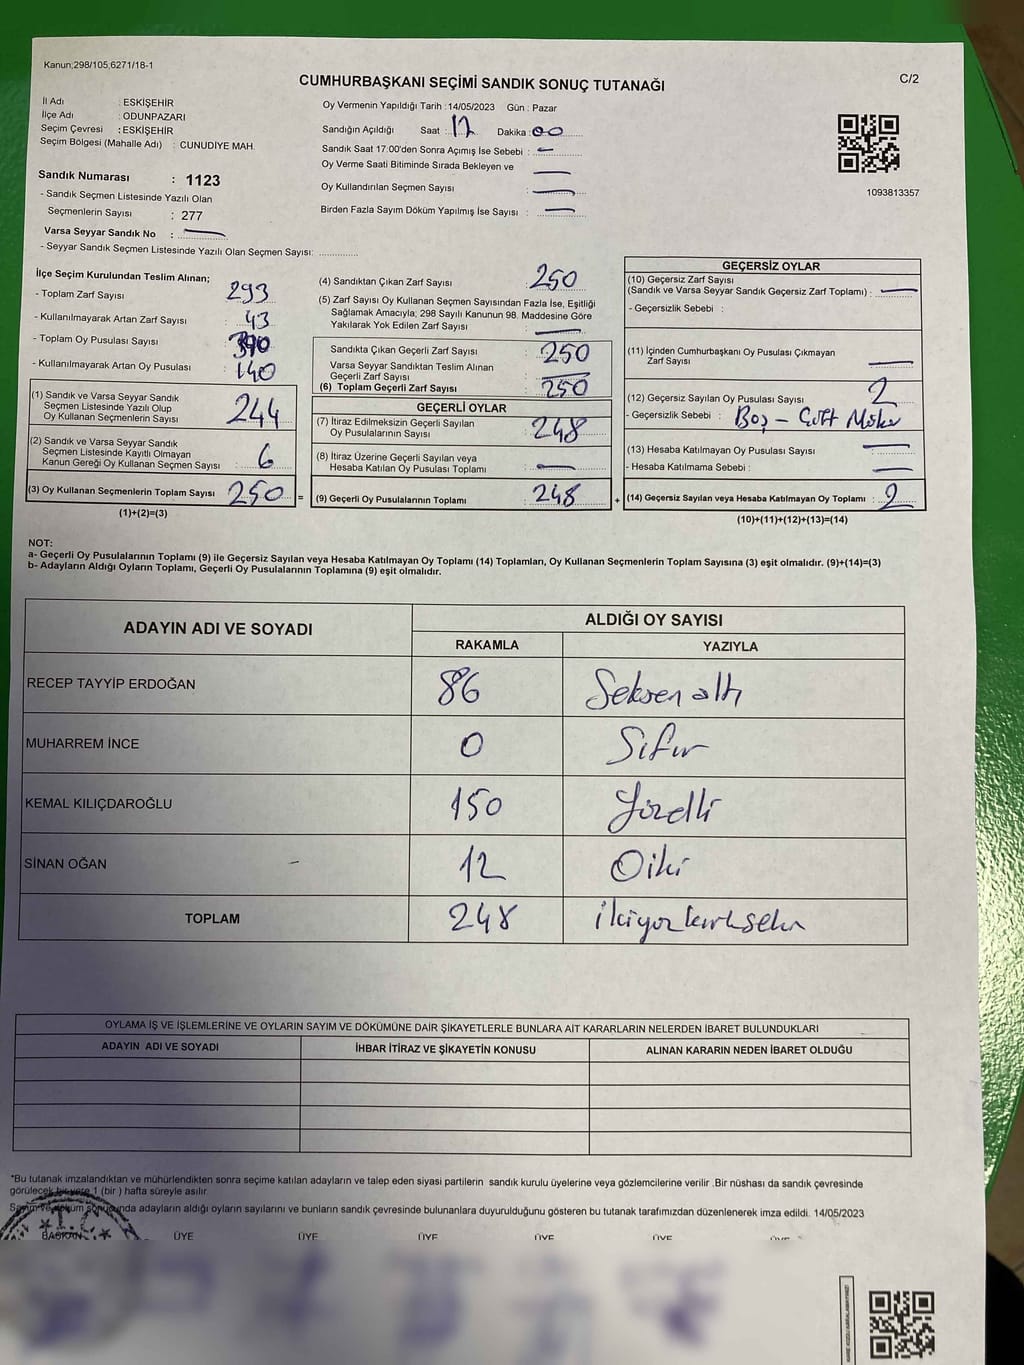 Kanun;298/105;6271/18-1
CUMHURBAŞKANI SEÇİMİ SANDIK SONUÇ TUTANAĞI
C/2
İl Adı : ESKİŞEHİR
İlçe Adı : ODUNPAZARI
Seçim Çevresi : ESKİŞEHİR
Seçim Bölgesi (Mahalle Adı) : CUNUDİYE MAH.
Sandık Numarası : 1123
- Sandık Seçmen Listesinde Yazılı Olan
Seçmenlerin Sayısı : 277
Varsa Seyyar Sandık No :
- Seyyar Sandık Seçmen Listesinde Yazılı Olan Seçmen Sayısı:
Oy Vermenin Yapıldığı Tarih : 14/05/2023 Gün : Pazar
Sandığın Açıldığı Saat : 17 Dakika : 00
Sandık Saat 17:00'den Sonra Açımış İse Sebebi : -
Oy Verme Saati Bitiminde Sırada Bekleyen ve
Oy Kullandırılan Seçmen Sayısı :
Birden Fazla Sayım Döküm Yapılmış İse Sayısı :
1093813357
İlçe Seçim Kurulundan Teslim Alınan;
- Toplam Zarf Sayısı : 293
- Kullanılmayarak Artan Zarf Sayısı : 43
- Toplam Oy Pusulası Sayısı : 390
- Kullanılmayarak Artan Oy Pusulası : 140
(1) Sandık ve Varsa Seyyar Sandık
Seçmen Listesinde Yazılı Olup
Oy Kullanan Seçmenlerin Sayısı : 244
(2) Sandık ve Varsa Seyyar Sandık
Seçmen Listesinde Kayıtlı Olmayan
Kanun Gereği Oy Kullanan Seçmen Sayısı : 6
(3) Oy Kullanan Seçmenlerin Toplam Sayısı : 250
(1)+(2)=(3)
(4) Sandıktan Çıkan Zarf Sayısı : 250
(5) Zarf Sayısı Oy Kullanan Seçmen Sayısından Fazla İse, Eşitliği
Sağlamak Amacıyla; 298 Sayılı Kanunun 98. Maddesine Göre
Yakılarak Yok Edilen Zarf Sayısı :
Sandıkta Çıkan Geçerli Zarf Sayısı : 250
Varsa Seyyar Sandıktan Teslim Alınan
Geçerli Zarf Sayısı :
(6) Toplam Geçerli Zarf Sayısı : 250
GEÇERLİ OYLAR
(7) İtiraz Edilmeksizin Geçerli Sayılan
Oy Pusulalarının Sayısı : 248
(8) İtiraz Üzerine Geçerli Sayılan veya
Hesaba Katılan Oy Pusulası Toplamı :
= (9) Geçerli Oy Pusulalarının Toplamı : 248
GEÇERSİZ OYLAR
(10) Geçersiz Zarf Sayısı
(Sandık ve Varsa Seyyar Sandık Geçersiz Zarf Toplamı) :
- Geçersizlik Sebebi :
(11) İçinden Cumhurbaşkanı Oy Pusulası Çıkmayan
Zarf Sayısı :
(12) Geçersiz Sayılan Oy Pusulası Sayısı : 2
- Geçersizlik Sebebi : Boş - Çift Mühür
(13) Hesaba Katılmayan Oy Pusulası Sayısı :
- Hesaba Katılmama Sebebi :
+ (14) Geçersiz Sayılan veya Hesaba Katılmayan Oy Toplamı : 2
(10)+(11)+(12)+(13)=(14)
NOT:
a- Geçerli Oy Pusulalarının Toplamı (9) ile Geçersiz Sayılan veya Hesaba Katılmayan Oy Toplamı (14) Toplamları, Oy Kullanan Seçmenlerin Toplam Sayısına (3) eşit olmalıdır. (9)+(14)=(3)
b- Adayların Aldığı Oyların Toplamı, Geçerli Oy Pusulalarının Toplamına (9) eşit olmalıdır.
ADAYIN ADI VE SOYADI
ALDIĞI OY SAYISI
RAKAMLA YAZIYLA
RECEP TAYYİP ERDOĞAN 86 Seksen altı
MUHARREM İNCE 0 Sıfır
KEMAL KILIÇDAROĞLU 150 Yüzelli
SİNAN OĞAN - 12 Oniki
TOPLAM 248 ikiyüzkırksekiz
OYLAMA İŞ VE İŞLEMLERİNE VE OYLARIN SAYIM VE DÖKÜMÜNE DAİR ŞİKAYETLERLE BUNLARA AİT KARARLARIN NELERDEN İBARET BULUNDUKLARI
ADAYIN ADI VE SOYADI İHBAR İTİRAZ VE ŞİKAYETİN KONUSU ALINAN KARARIN NEDEN İBARET OLDUĞU
*Bu tutanak imzalandıktan ve mühürlendikten sonra seçime katılan adayların ve talep eden siyasi partilerin sandık kurulu üyelerine veya gözlemcilerine verilir .Bir nüshası da sandık çevresinde
görülecek bir yere 1 (bir ) hafta süreyle asılır.
Sayım ve döküm sonucunda adayların aldığı oyların sayılarını ve bunların sandık çevresinde bulunanlara duyurulduğunu gösteren bu tutanak tarafımızdan düzenlenerek imza edildi. 14/05/2023
T.C.
BAŞKAN ÜYE ÜYE ÜYE ÜYE ÜYE ÜYE